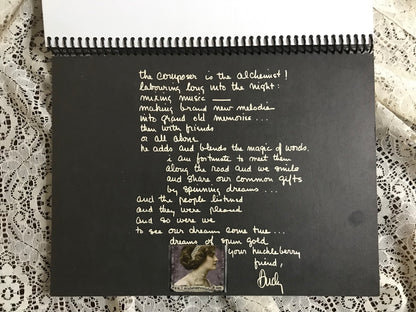 the composer is the alchemist!
labouring long into the night:
mixing music —
making brand new melodies
into grand old memories...
then with friends
or all alone
he adds and blends the magic of words.
i am fortunate to meet them
along the road and we smile
and share our common gifts
by spinning dreams...
and the people listened
and they were pleased
and so were we
to see our dreams come true...
dreams of spun gold
your huckleberry
friend,